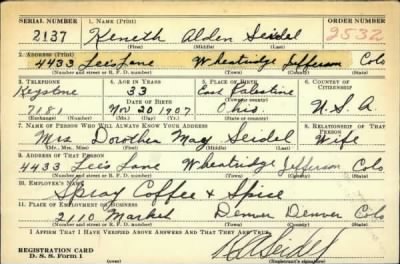 SERIAL NUMBER 1. NAME (Print) ORDER NUMBER
2137 Keneth Alden Seidel 2532
(First) (Middle) (Last)
2. ADDRESS (Print)
4433 Lee's Lane Wheatridge Jefferson Colo
(Number and street or R. F. D. number) (Town) (County) (State)
3. TELEPHONE 4. AGE IN YEARS 5. PLACE OF BIRTH 6. COUNTRY OF CITIZENSHIP
Keystone 33 East Palestine
DATE OF BIRTH (Town or county)
7181 Nov 20 1907 Ohio. U.S.A
(Exchange) (Number) (Mo.) (Day) (Yr.) (State or country)
7. NAME OF PERSON WHO WILL ALWAYS KNOW YOUR ADDRESS 8. RELATIONSHIP OF THAT PERSON
Mrs Dorothea May Seidel Wife
(Mr., Mrs., Miss) (First) (Middle) (Last)
9. ADDRESS OF THAT PERSON
4433 Lee's Lane Wheatridge Jefferson Colo
(Number and street or R. F. D. number) (Town) (County) (State)
10. EMPLOYER'S NAME
Spray Coffee & Spice
11. PLACE OF EMPLOYMENT OR BUSINESS
2110 Market Denver Denver Colo
(Number and street or R. F. D. number) (Town) (County) (State)
I AFFIRM THAT I HAVE VERIFIED ABOVE ANSWERS AND THAT THEY ARE TRUE.
REGISTRATION CARD
D. S. S. Form 1 (Registrant's signature)